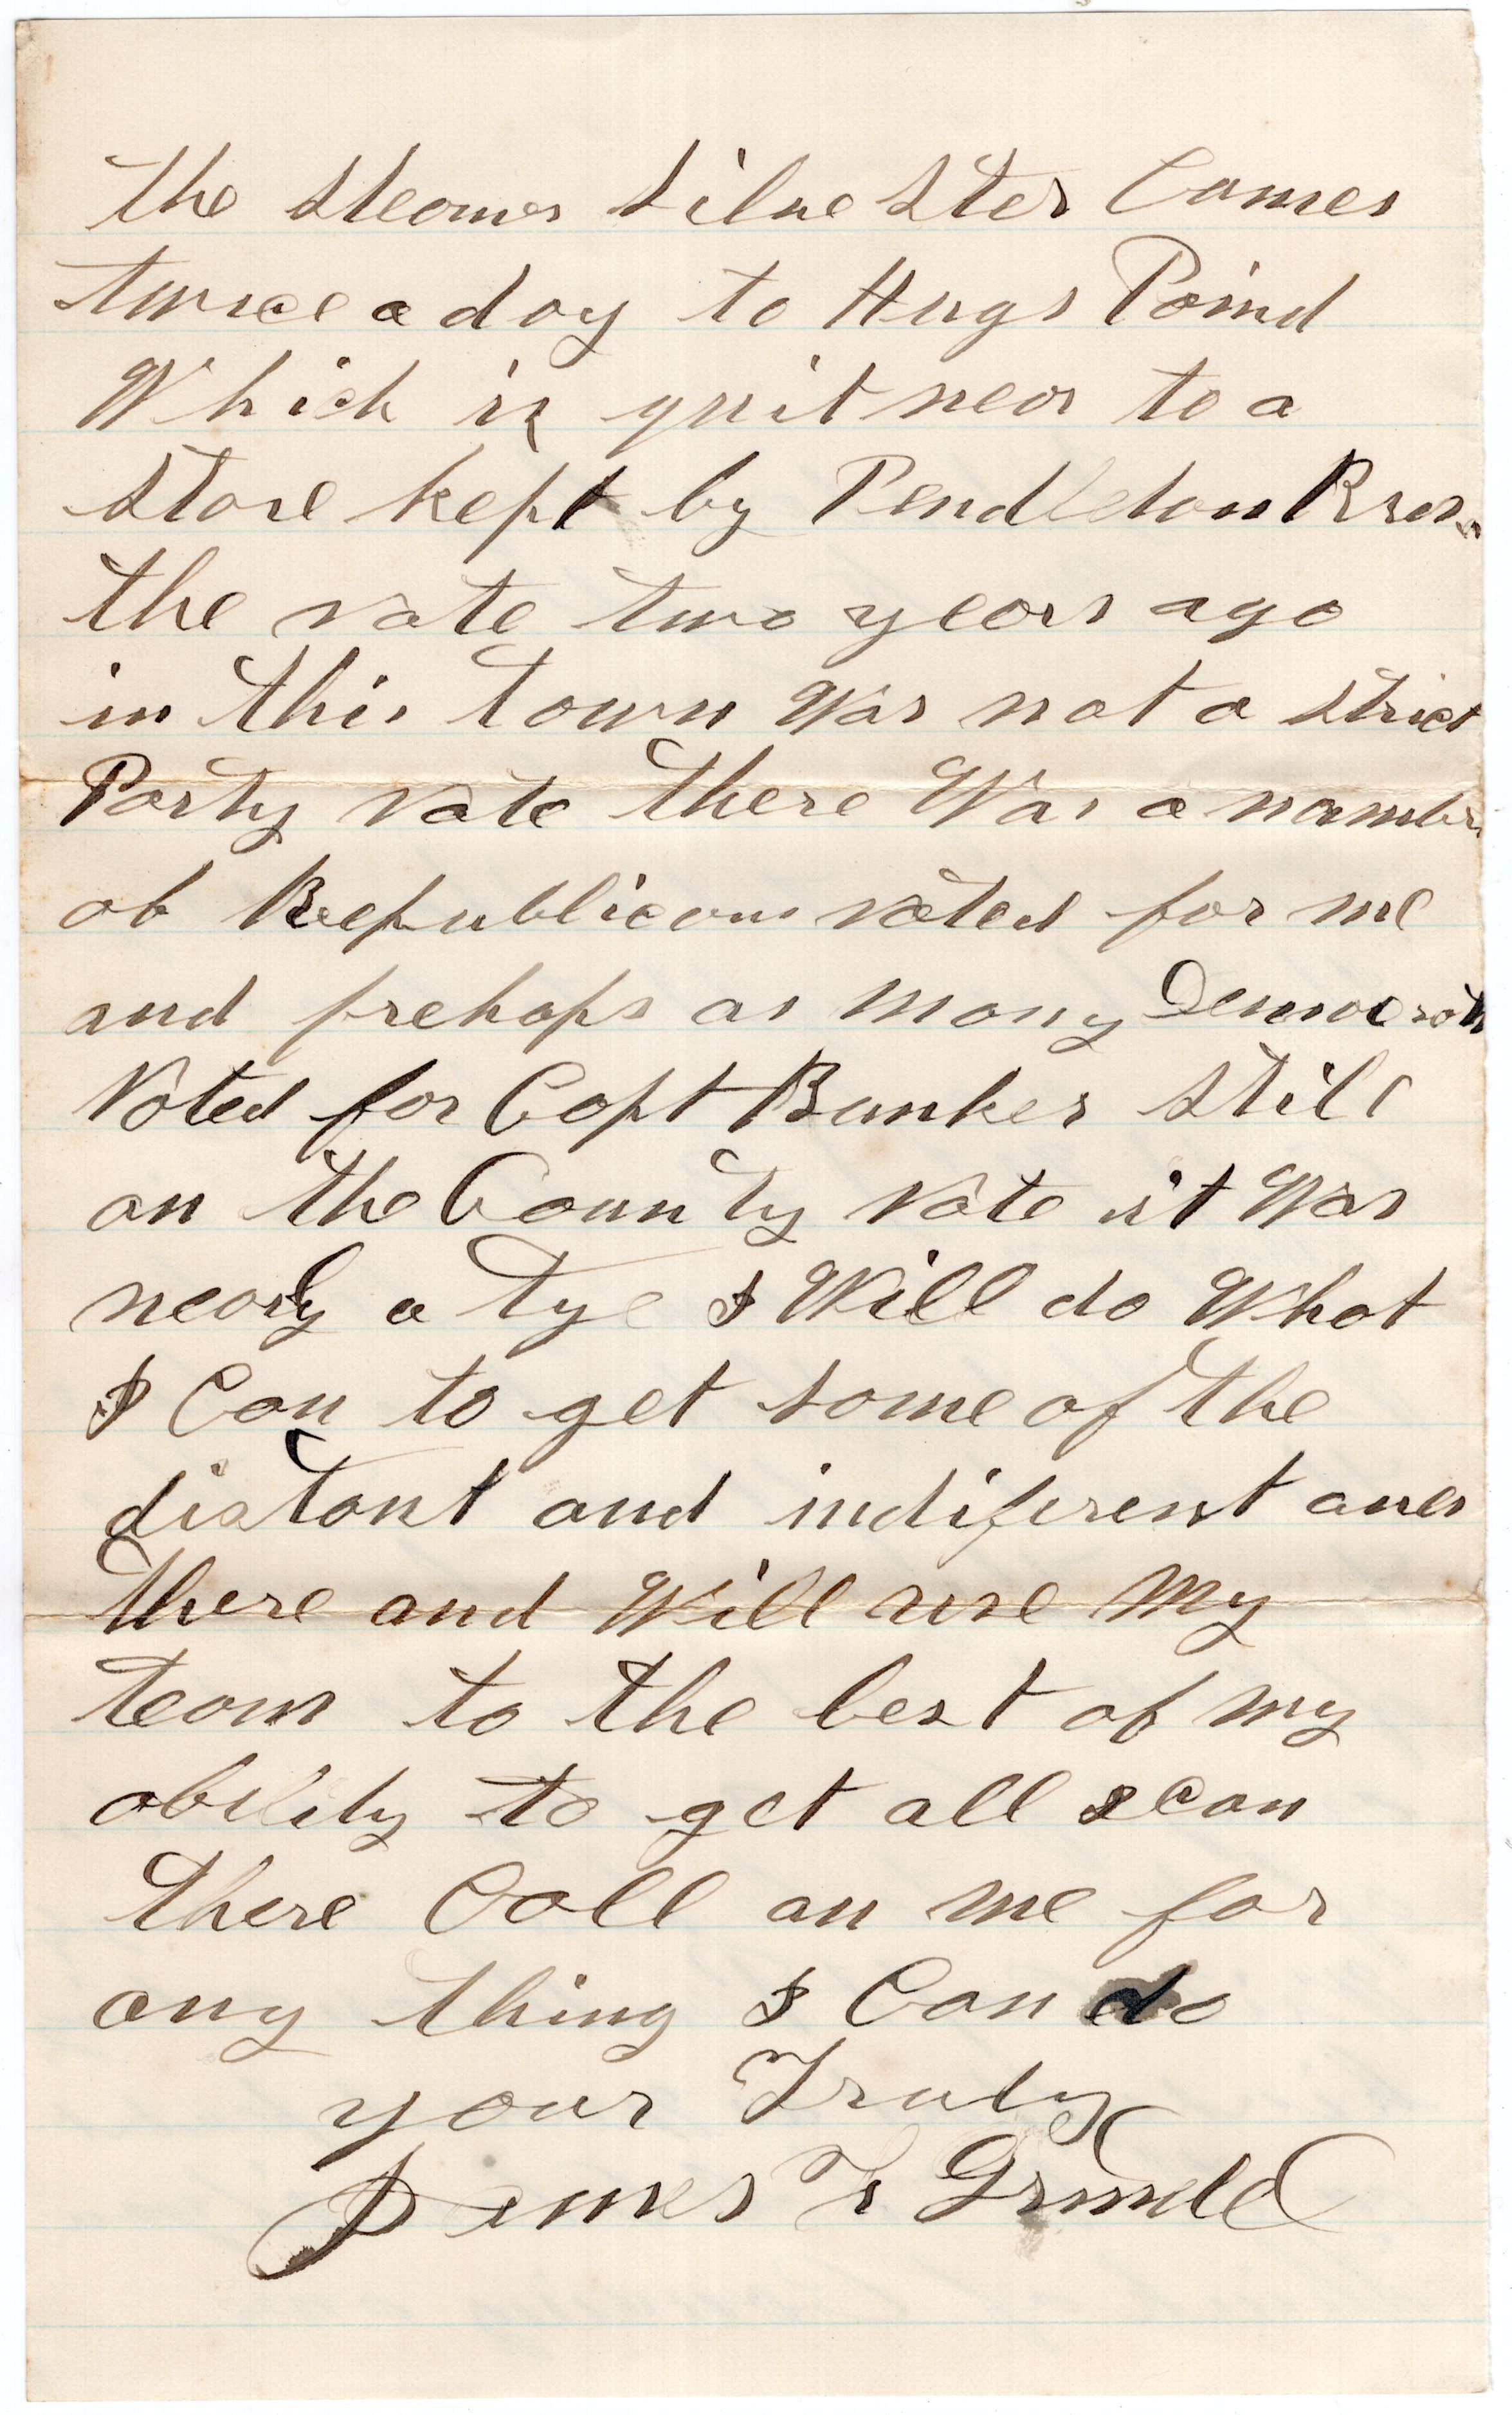 the Steamer Silvester Comes
twice a day to Hugs Poind
Which is quit near to a
Store kept by Pendleton Bros.
the vote two years ago
in this town Was not a strict
Party vote there Was a number
of Republicans voted for me
and prehaps as many Democrats
Voted for Capt Bunker Still
on the County vote it Was
nearly a tye I Will do What
I Can to get some of the
distant and indiferent ones
there and Will use my
team to the best of my
ability to get all I Can
there Call on me for
any thing I Can do
your Truly
James